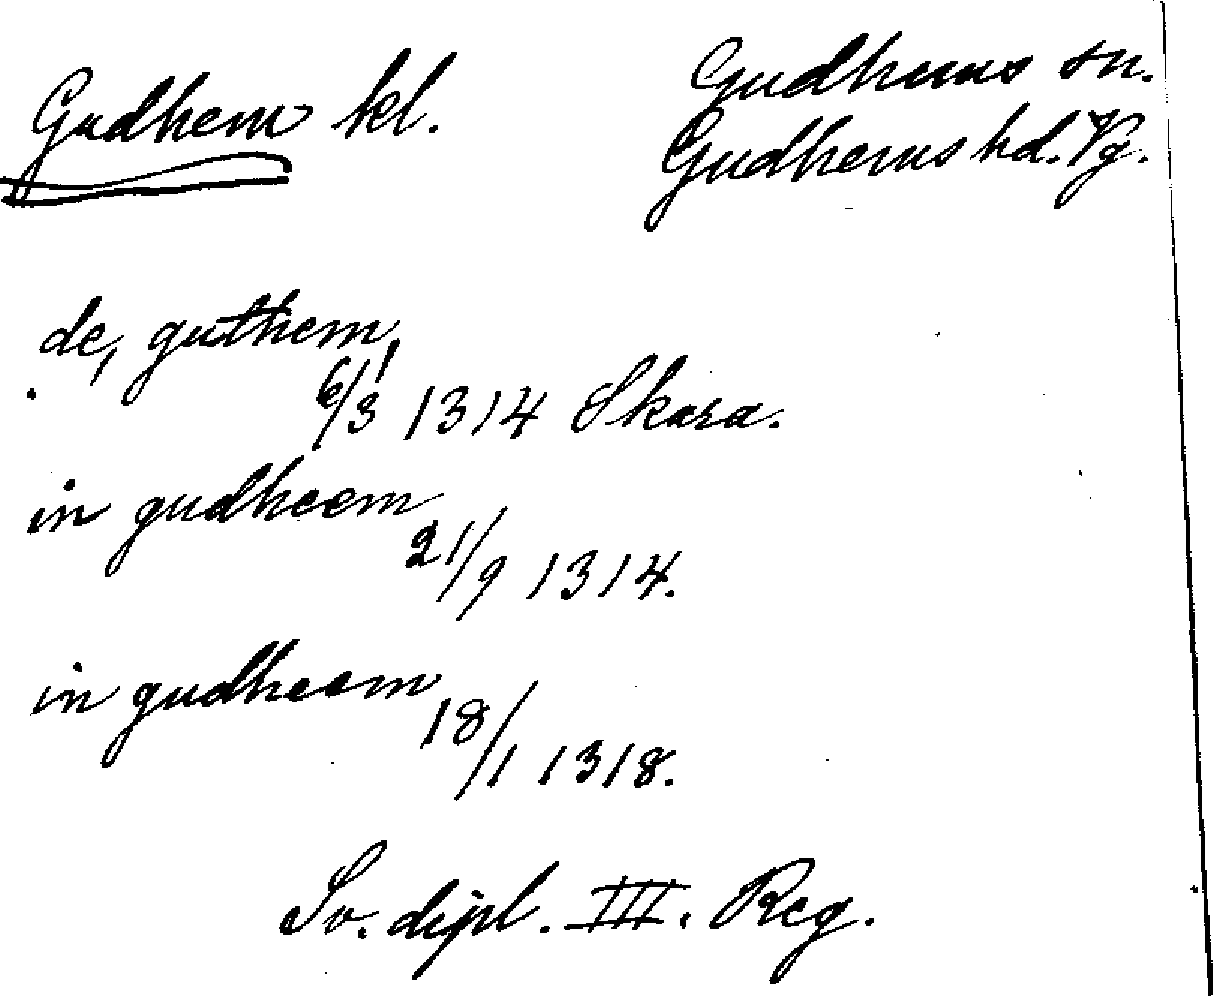 Gudhem kl.
Gudhems sn.
Gudhems hd. Vg.
de, guthem,
6/3 1314 Skara.
in gudheem
21/9 1314.
in gudheem
18/1 1318.
Sv. dipl. III. Reg.